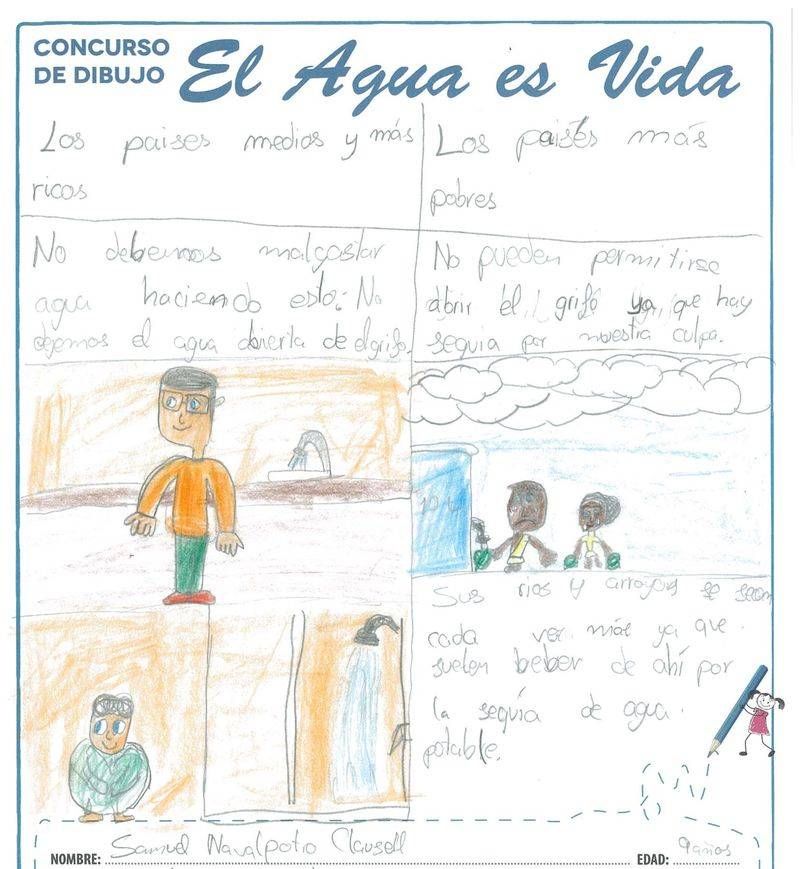 CONCURSO
DE DIBUJO
El Agua es Vida
Los paises medios y más
ricos
Los paisés más
pobres
No debemos malgostar
agua haciendo esto: No
dejemos el agua abierta de el grifo.
No pueden permitirse
abrir el grifo ya que hay
sequia por nuestra culpa.
Sus rios y arroyos se secan
cada vez más ya que
suelen beber de ahí por
la sequía de agua
potable.
Samuel Navalpotro Clausell
NOMBRE:
EDAD:
9 años